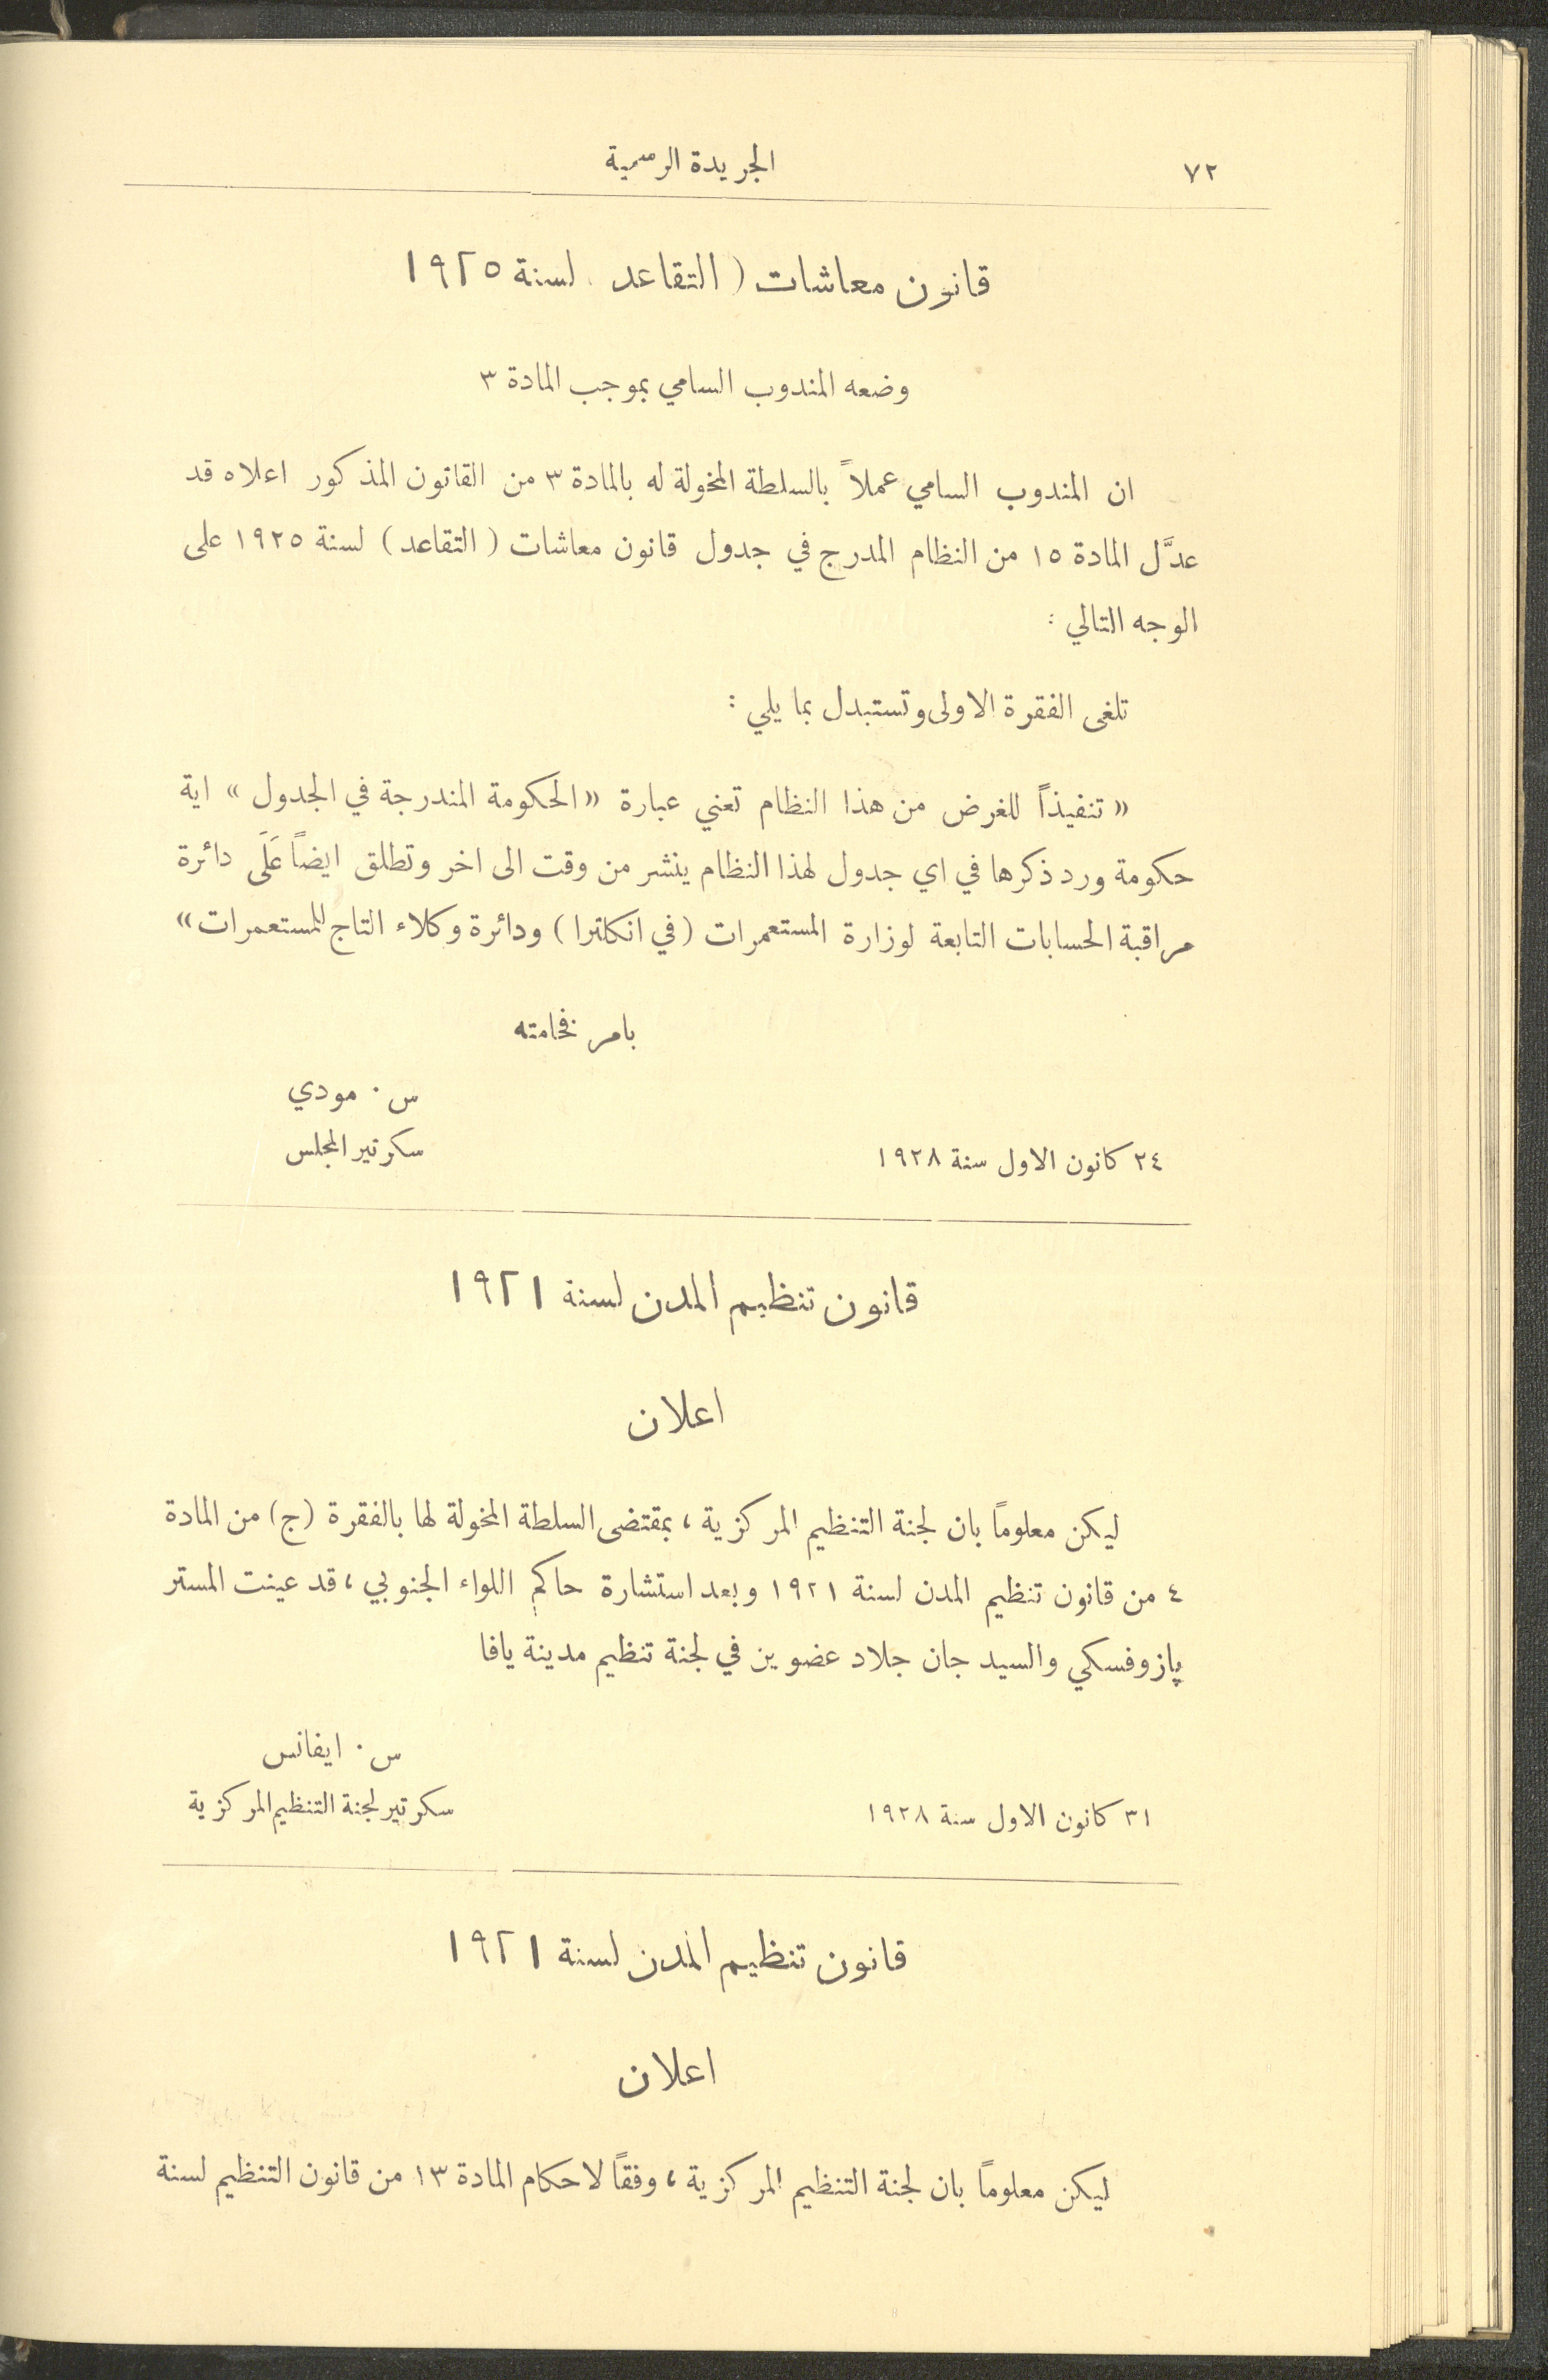 ٧٢
الجريدة الرسمية
قانون معاشات ( التقاعد . لسنة ١٩٢٥
وضعه المندوب السامي بموجب المادة ٣
ان المندوب السامي عملاً بالسلطة المخولة له بالمادة ٣ من القانون المذكور اعلاه قد
عدَّل المادة ١٥ من النظام المدرج في جدول قانون معاشات ( التقاعد ) لسنة ١٩٢٥ على
الوجه التالي :
تلغى الفقرة الاولى وتستبدل بما يلي :
« تنفيذاً للغرض من هذا النظام تعني عبارة « الحكومة المندرجة في الجدول » اية
حكومة ورد ذكرها في اي جدول لهذا النظام ينشر من وقت الى اخر وتطلق ايضاً عَلَى دائرة
مراقبة الحسابات التابعة لوزارة المستعمرات ( في انكلترا ) ودائرة وكلاء التاج للمستعمرات »
بامر فخامته
س . مودي
سكرتير المجلس
٢٤ كانون الاول سنة ١٩٢٨
قانون تنظيم المدن لسنة ١٩٢١
اعلان
ليكن معلوماً بان لجنة التنظيم المركزية ، بمقتضى السلطة المخولة لها بالفقرة (ج) من المادة
٤ من قانون تنظيم المدن لسنة ١٩٢١ وبعد استشارة حاكم اللواء الجنوبي ، قد عينت المستر
پازوفسكي والسيد جان جلاد عضوين في لجنة تنظيم مدينة يافا
س . ايفانس
سكرتير لجنة التنظيم المركزية
٣١ كانون الاول سنة ١٩٢٨
قانون تنظيم المدن لسنة ١٩٢١
اعلان
ليكن معلوماً بان لجنة التنظيم المركزية ، وفقاً لاحكام المادة ١٣ من قانون التنظيم لسنة